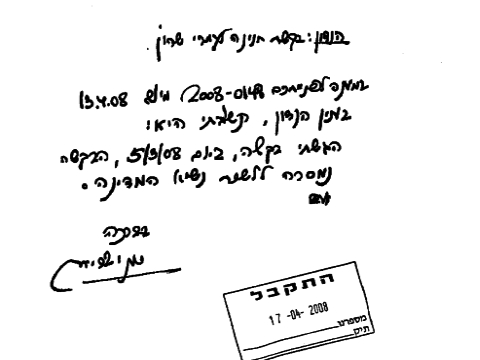 הנדון: בקשת חנינה לעמרי שרון.
במענה לפנייתכם 2008-0148 מיום 13.4.08
בענין הנדון, תשובתי היא:
הגשתי בקשה, ביום 5/3/08, הבקשה
נמסרה ללשכת נשיא המדינה.
בברכה
התקבל
17-04-2008
מספרנו
תיק